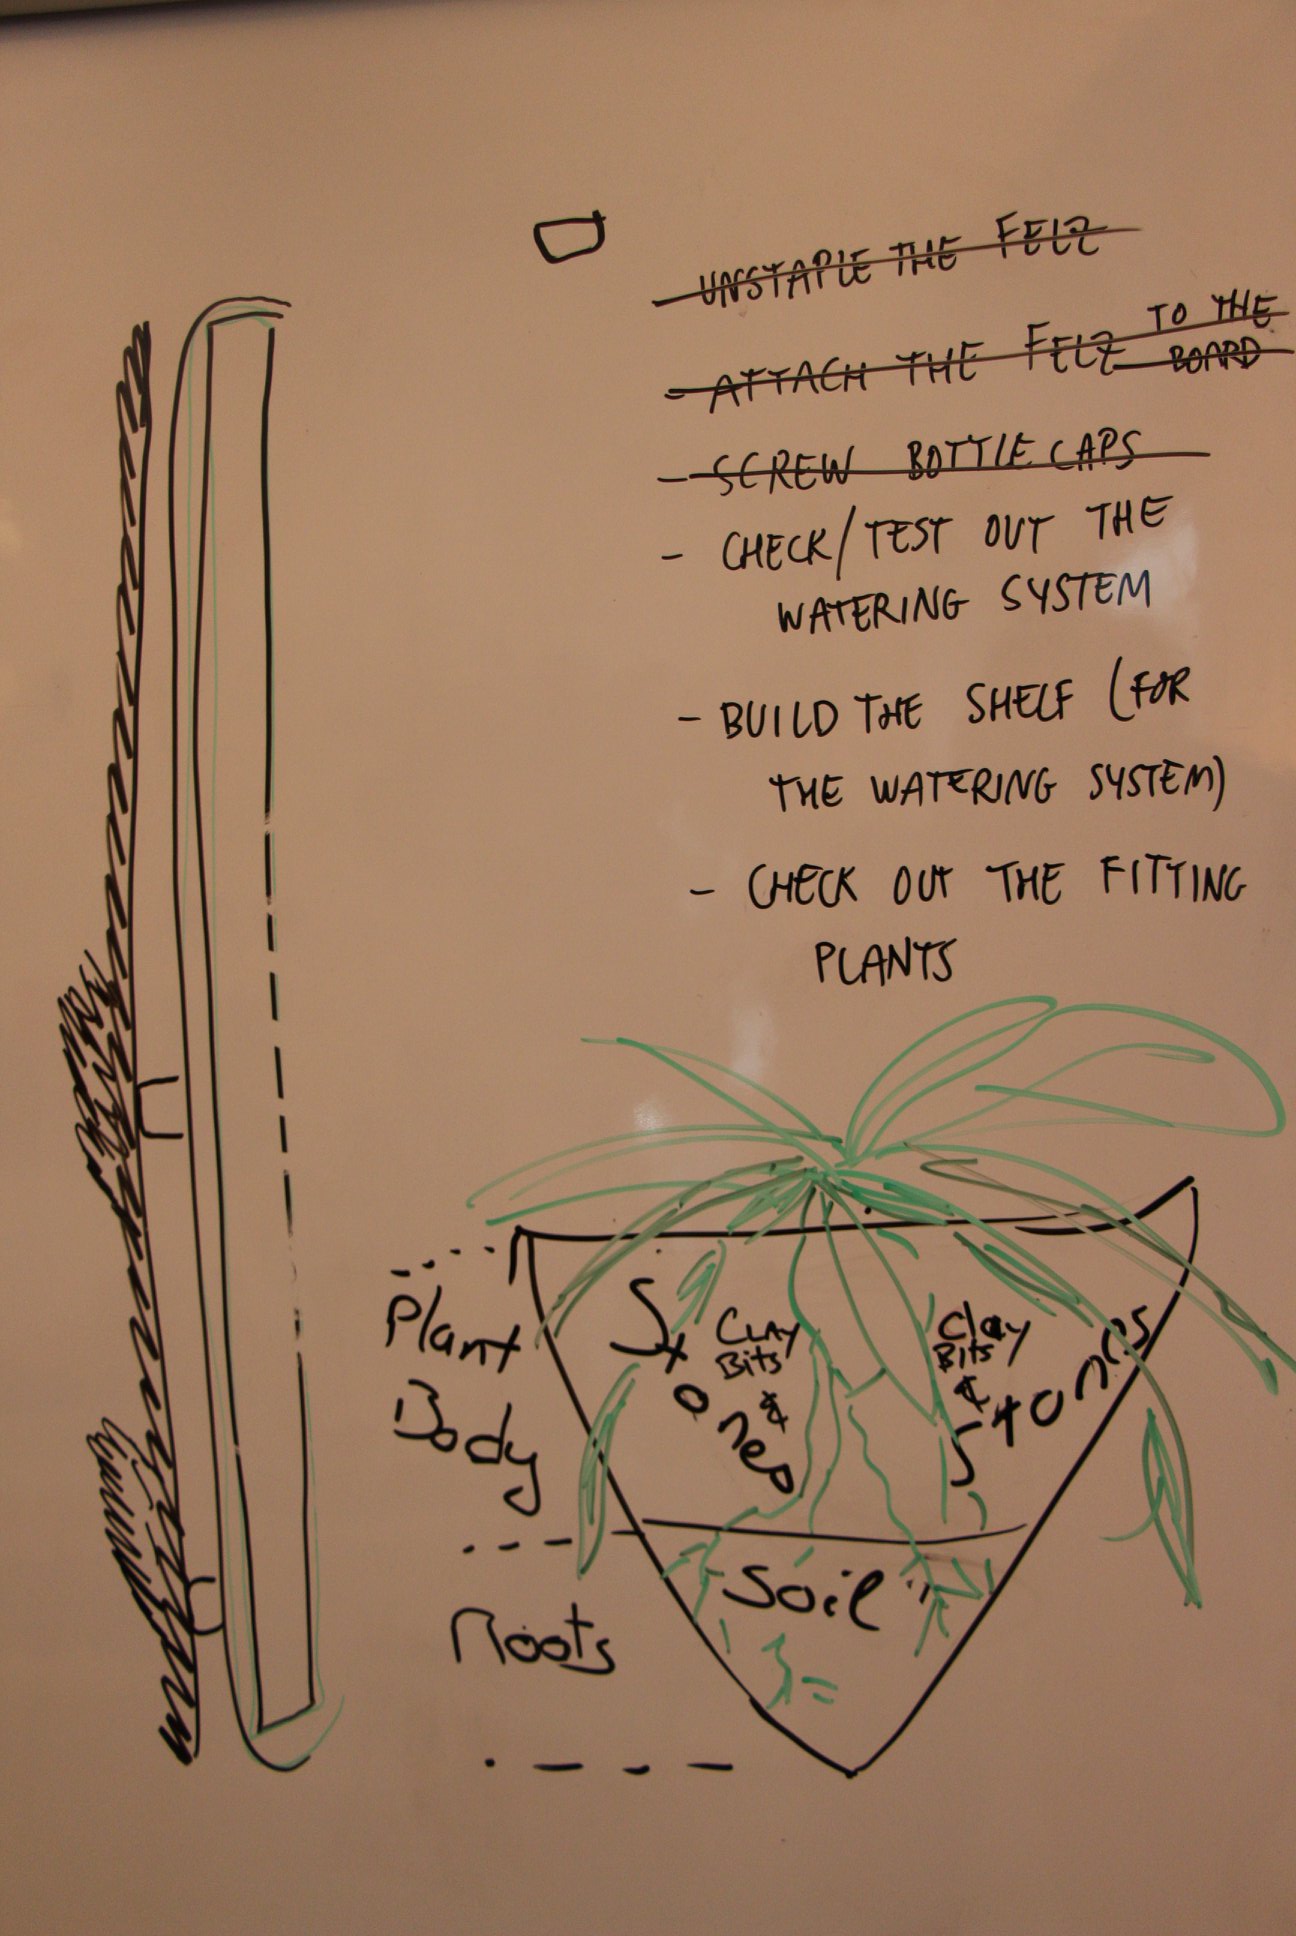 UNSTAPLE THE FELZ
- ATTACH THE FELZ TO THE
BOARD
- SCREW BOTTLE CAPS
- CHECK/TEST OUT THE
WATERING SYSTEM
- BUILD THE SHELF (FOR
THE WATERING SYSTEM)
- CHECK OUT THE FITTING
PLANTS
Plant
Body
Roots
CLAY
Bits
&
Stones
Clay
Bits
&
Stones
Soil